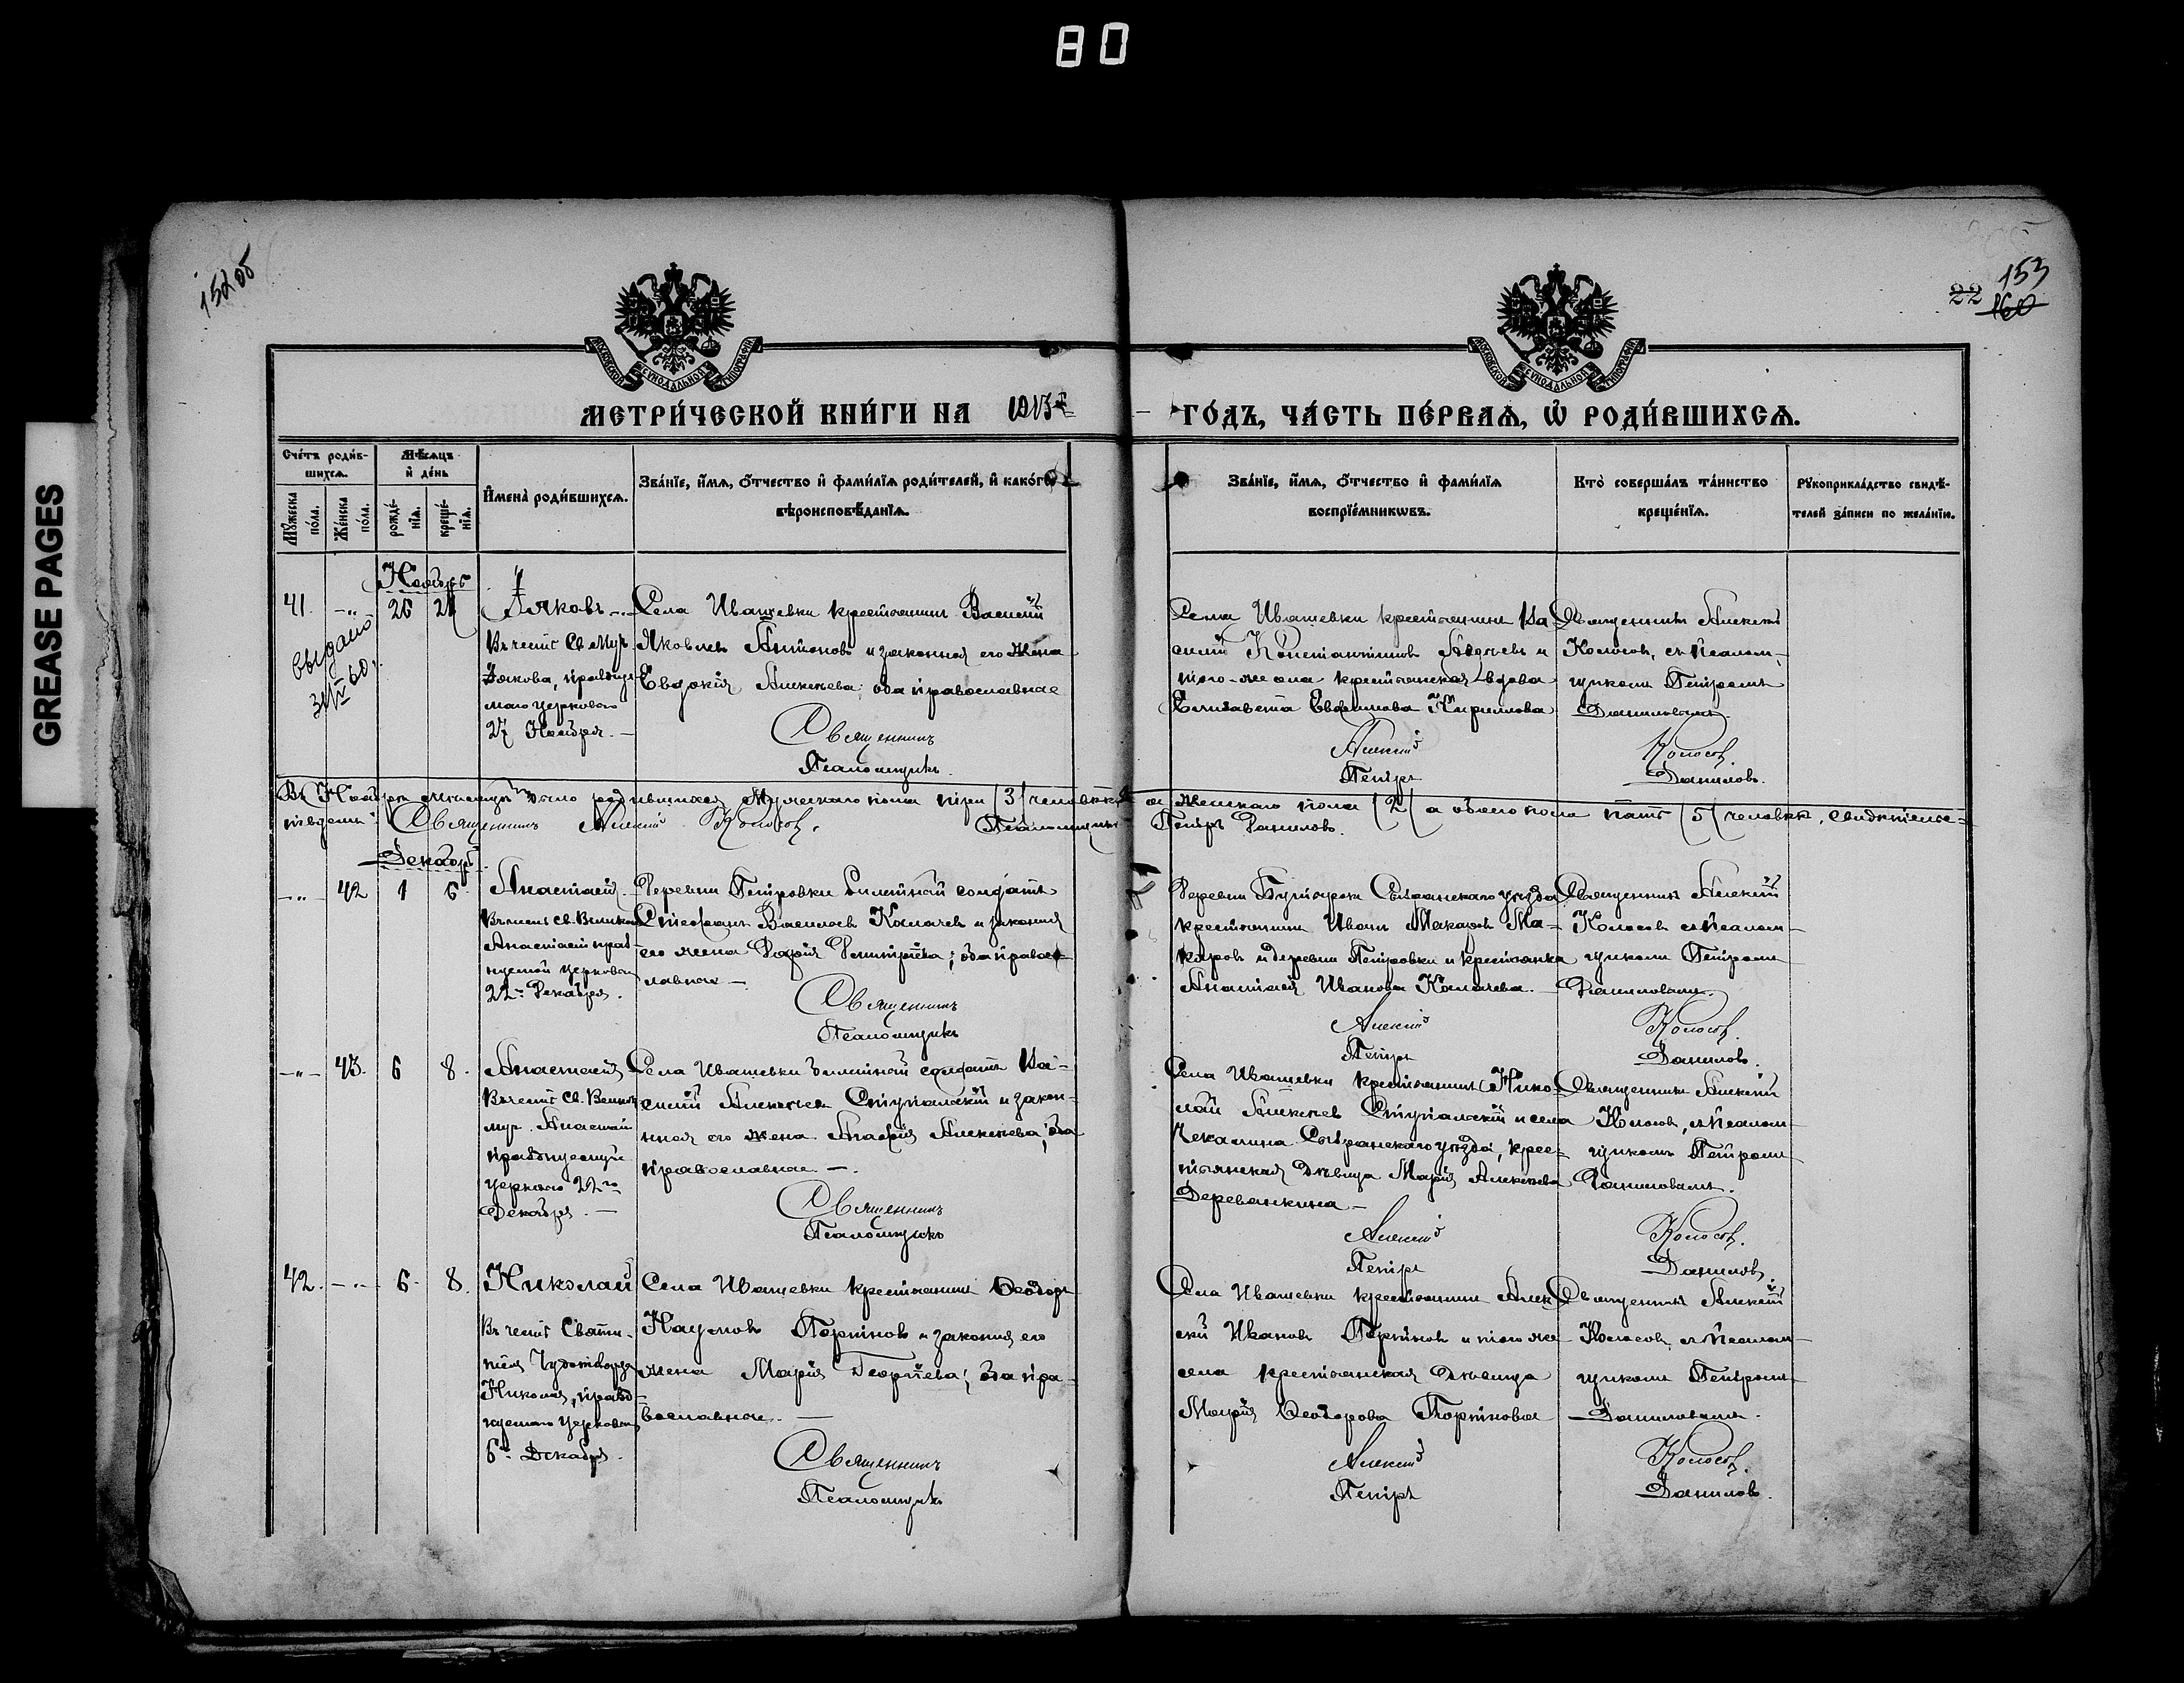 80
GREASE PAGES
152 об
153
22 160
МОСКОВСКОЙ СѴНОДАЛЬНОЙ ТИПОГРАФІИ
МОСКОВСКОЙ СѴНОДАЛЬНОЙ ТИПОГРАФІИ
МЕТРИ́ЧЕСКОЙ КНИ́ГИ НА 1913 г.
ГО́ДЪ, ЧА́СТЬ ПЕ́РВАѦ, Ѡ҆ РОДИ́ВШИХСѦ.
Сче́тъ роди́в-
шихсѧ.
Мѣ́сѧцъ
и҆ де́нь
Мꙋ́жеска
по́ла.
Же́нска
по́ла.
рожде́-
нїѧ.
креще́-
нїѧ.
И҆мена̀ роди́вшихсѧ.
Зва́нїе, и҆́мѧ, о҆́тчество и҆ фами́лїѧ роди́телей, и҆ како́гѡ
вѣроисповѣ́данїѧ.
Зва́нїе, и҆́мѧ, о҆́тчество и҆ фами́лїѧ
воспрїе́мникѡвъ.
Кто̀ соверша́лъ та́инство
креще́нїѧ.
Рꙋкоприкла́дство свидѣ́-
телей за́писи по жела́нїю.
Ноябрь
41. -„-
26
Іаковъ
Въ честь Св. Муч.
Іакова, празднуе
маго церковью
27 Ноября.
выдано
Села Ивашевки крестьянинъ Василій
Яковлевъ Антоновъ и законная его жена
Евдокія Алексѣева; оба православные
Священникъ
Псаломщикъ.
Села Ивашевки крестьянинъ Ва-
силій Константиновъ Авдѣевъ и
того-же села крестьянская вдова
Елизавета Евфимова Кириллова
Алексій
Петръ
Священникъ Алексѣй
Колосовъ, съ псалом-
щикомъ Петромъ
Даниловымъ.
Колосовъ.
Даниловъ.
Въ Ноябрѣ мѣсяцѣ было родившихся мужескаго пола три (3) человѣка, а женскаго пола (2) а обоего пола пять (5) человѣкъ, свидѣтельс-
твуемъ: Священникъ Алексій Колосовъ. Псаломщикъ Петръ Даниловъ.
Декабрь.
-„- 42 1 6.
Анастасія.
Въ честь св. Великом.
Анастасіи празд-
нуемой церковью
22го Декабря.
Деревни Петровки билетный солдатъ
Стефанъ Васильевъ Калачевъ и законная
его жена Дарія Димитріева; оба правос-
лавные —
Священникъ
Псаломщикъ
Сызранскаго уѣзда
крестьянинъ Иванъ Макаровъ Ма-
каровъ и деревни Петровки крестьянка
Анастасія Иванова Калачева.
Алексій
Петръ
Священникъ Алексій
Колосовъ съ псалом-
щикомъ Петромъ
Даниловымъ.
Колосовъ.
Даниловъ.
-„- 43. 6 8.
Анастасія
Въ честь Св. Велико
муч. Анастасіи
празднуемуй
церковью 22го
Декабря. —
Села Ивашевки билетный солдатъ Ва-
силій Алексѣевъ Ступальскій и закон-
ная его жена Агафія Алексѣева; оба
православные. —.
Священникъ
Псаломщикъ
Села Ивашевки крестьянинъ Нико-
лай Алексѣевъ Ступальскій и села
Чекалина Сызранскаго уѣзда, крес-
тьянская дѣвица Марія Алексѣева
Деревянкина —
Алексій
Петръ
Священникъ Алексій
Колосовъ, съ псалом-
щикомъ Петромъ
Даниловымъ.
Колосовъ.
Даниловъ.
42. -„- 6. 8.
Николай
Въ честь Святи-
теля Чудотворца
Николая, празд-
нуемаго церковью
6го Декабря.
Села Ивашевки крестьянинъ Ѳеодоръ
Наумовъ Портновъ и законная его
жена Марія Георгіева; оба пра-
вославные. —
Священникъ
Псаломщикъ
Села Ивашевки крестьянинъ Алек
сѣй Ивановъ Портновъ и того же
села крестьянская дѣвица
Марія Ѳеодорова Портнова
Алексій
Петръ
Священникъ Алексій
Колосовъ, съ псалом-
щикомъ Петромъ
Даниловымъ.
Колосовъ.
Даниловъ.